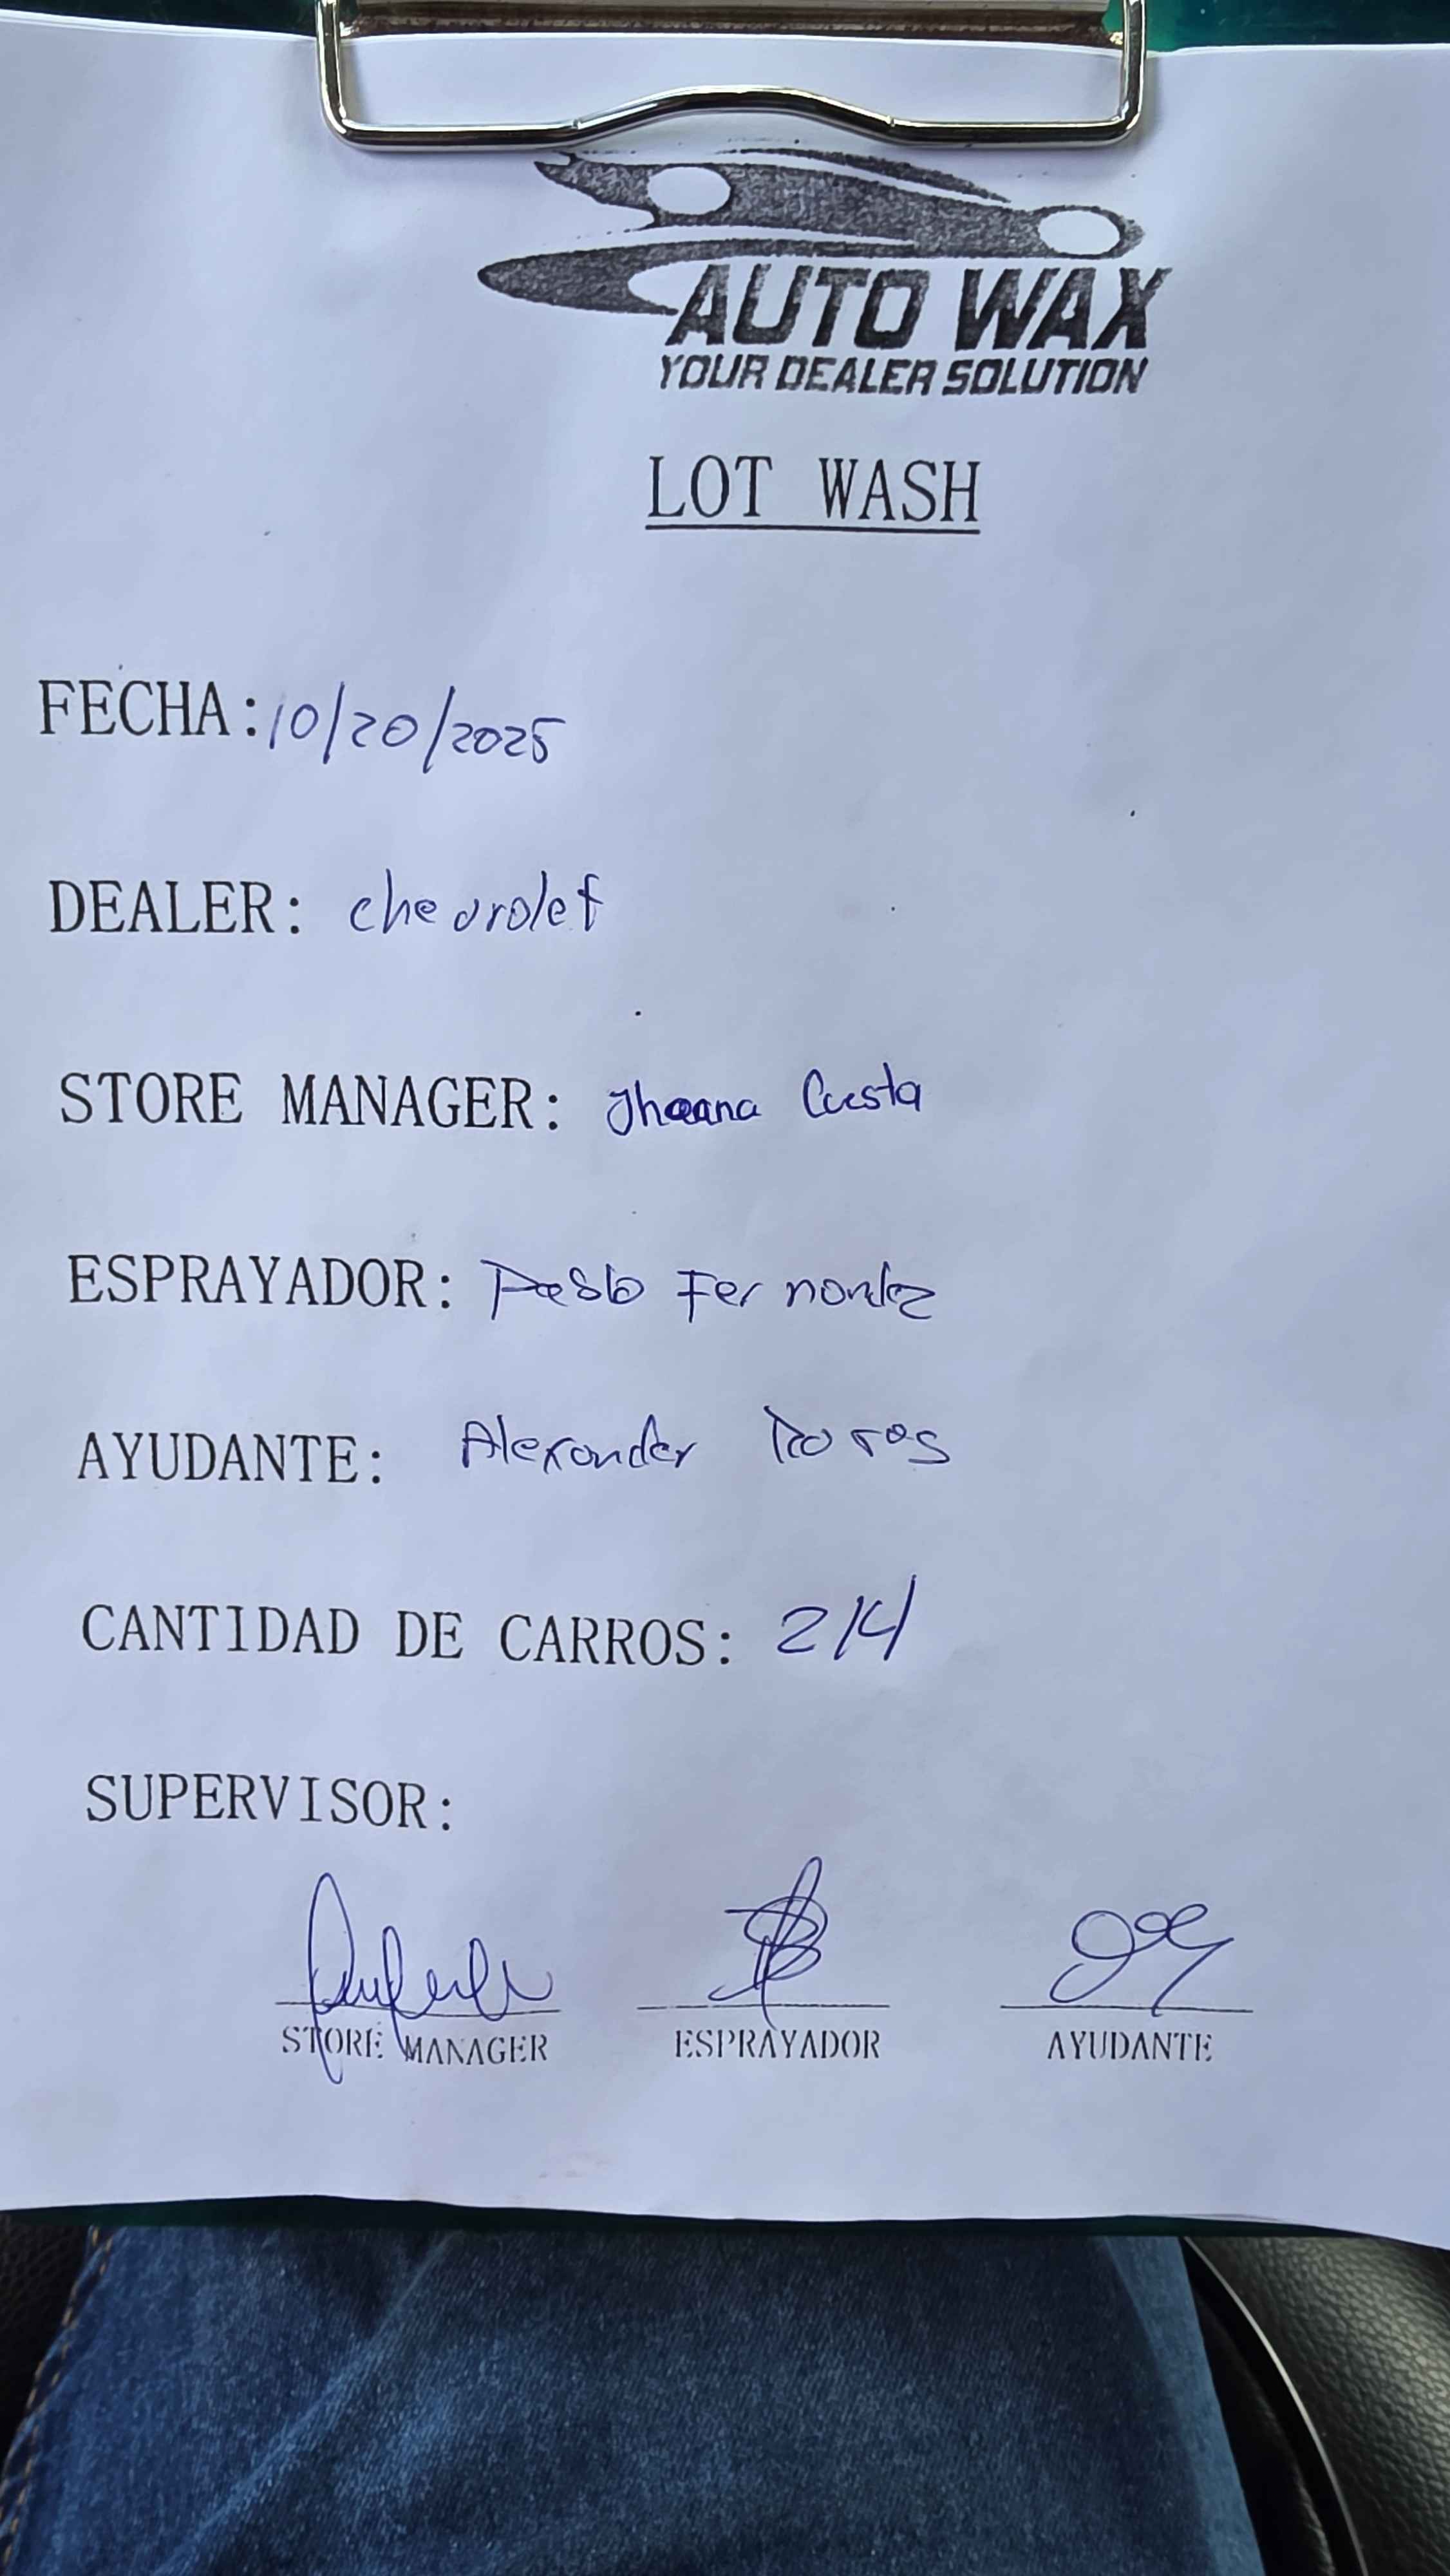 AUTO WAX
YOUR DEALER SOLUTION
LOT WASH
FECHA: 10/20/2025
DEALER: chevrolet
STORE MANAGER: Jhoana Cuesta
ESPRAYADOR: Pablo Fernandez
AYUDANTE: Alexander
CANTIDAD DE CARROS: 214
SUPERVISOR:
STORE MANAGER ESPRAYADOR AYUDANTE